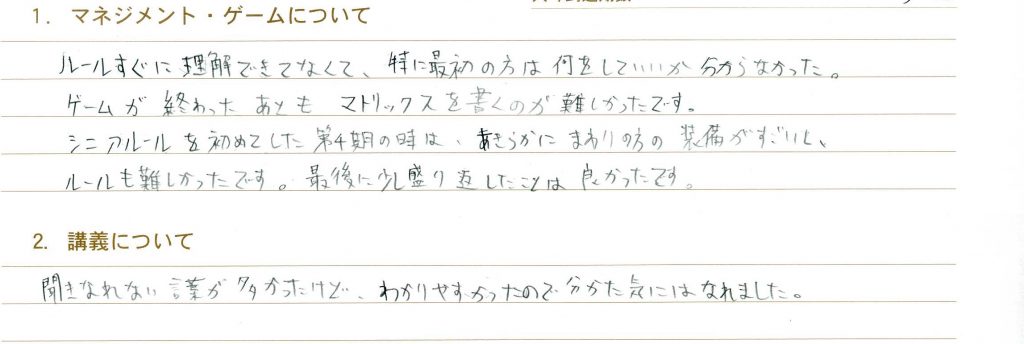 1. マネジメント・ゲームについて
ルールすぐに理解できてなくて、特に最初の方は何をしていいか分からなかった。
ゲームが終わったあともマトリックスを書くのが難しかったです。
シニアルールを初めてした第4期の時は、あきらかにまわりの方の装備がすごいし、
ルールも難しかったです。最後に少し盛り返したことは良かったです。
2. 講義について
聞きなれない言葉が多かったけど、わかりやすかったので分かた気にはなれました。